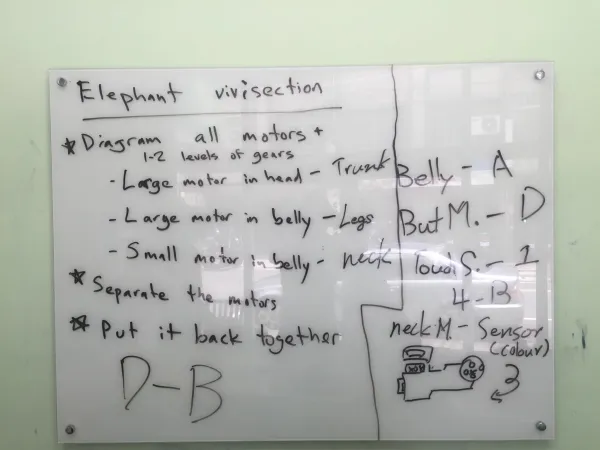 Elephant vivisection
* Diagram all motors +
1-2 levels of gears
- Large motor in head - Trunk
- Large motor in belly - Legs
- Small motor in belly - neck
* Separate the motors
* Put it back together
D-B
Belly - A
But M. - D
Touch S. - 1
4-B
neck M - Sensor
(colour)
3